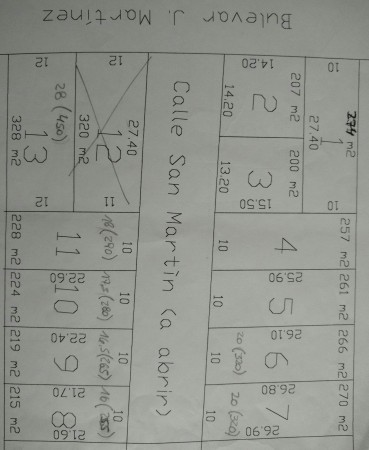 Bulevar J. Martínez
Calle San Martín (a abrir)
10
274 m2
1
27.40
10
14.20
207 m2
2
14.20
200 m2
3
13.20
15.50
257 m2
4
10
25.90
261 m2
5
10
26.10
266 m2
6
20 (320)
10
26.80
270 m2
7
20 (320)
10
26.90
12
27.40
12
320 m2
11
12
28 (450)
13
328 m2
12
18 (290)
10
11
228 m2
22.60
17,5 (280)
10
10
224 m2
22.40
10
9
219 m2
21.70
10
8
215 m2
21.60